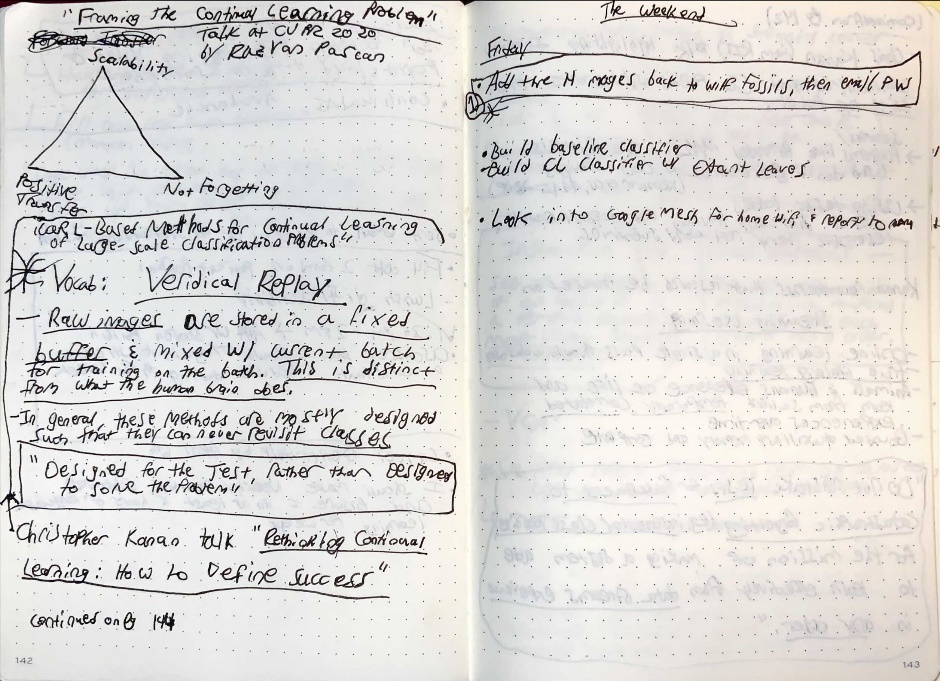 "Framing the Continual Learning Problem"
Talk at CVPR 2020
by Razvan Pascan
Scalability
Positive
Transfer
Not Forgetting
"icaRL-Based Methods for Continual Learning
of large-scale classification Problems"
Vocab: Veridical Replay
- Raw images are stored in a fixed
buffer & mixed w/ current batch
for training on the batch. This is distinct
from what the human brain does.
- In general, these methods are mostly designed
such that they can never revisit classes
"Designed for the Test Rather than Designed
to solve the Problem"
Christopher Kanan talk "Rethinking Continual
Learning: How to Define Success"
continued on 144
142
The Weekend
Friday
• Add the N images back to wilf Fossils, then email PW
• Build baseline classifier
- Build CL classifier w/ Extant Leaves
• Look into Google Mesh for home wifi & report to mom
143